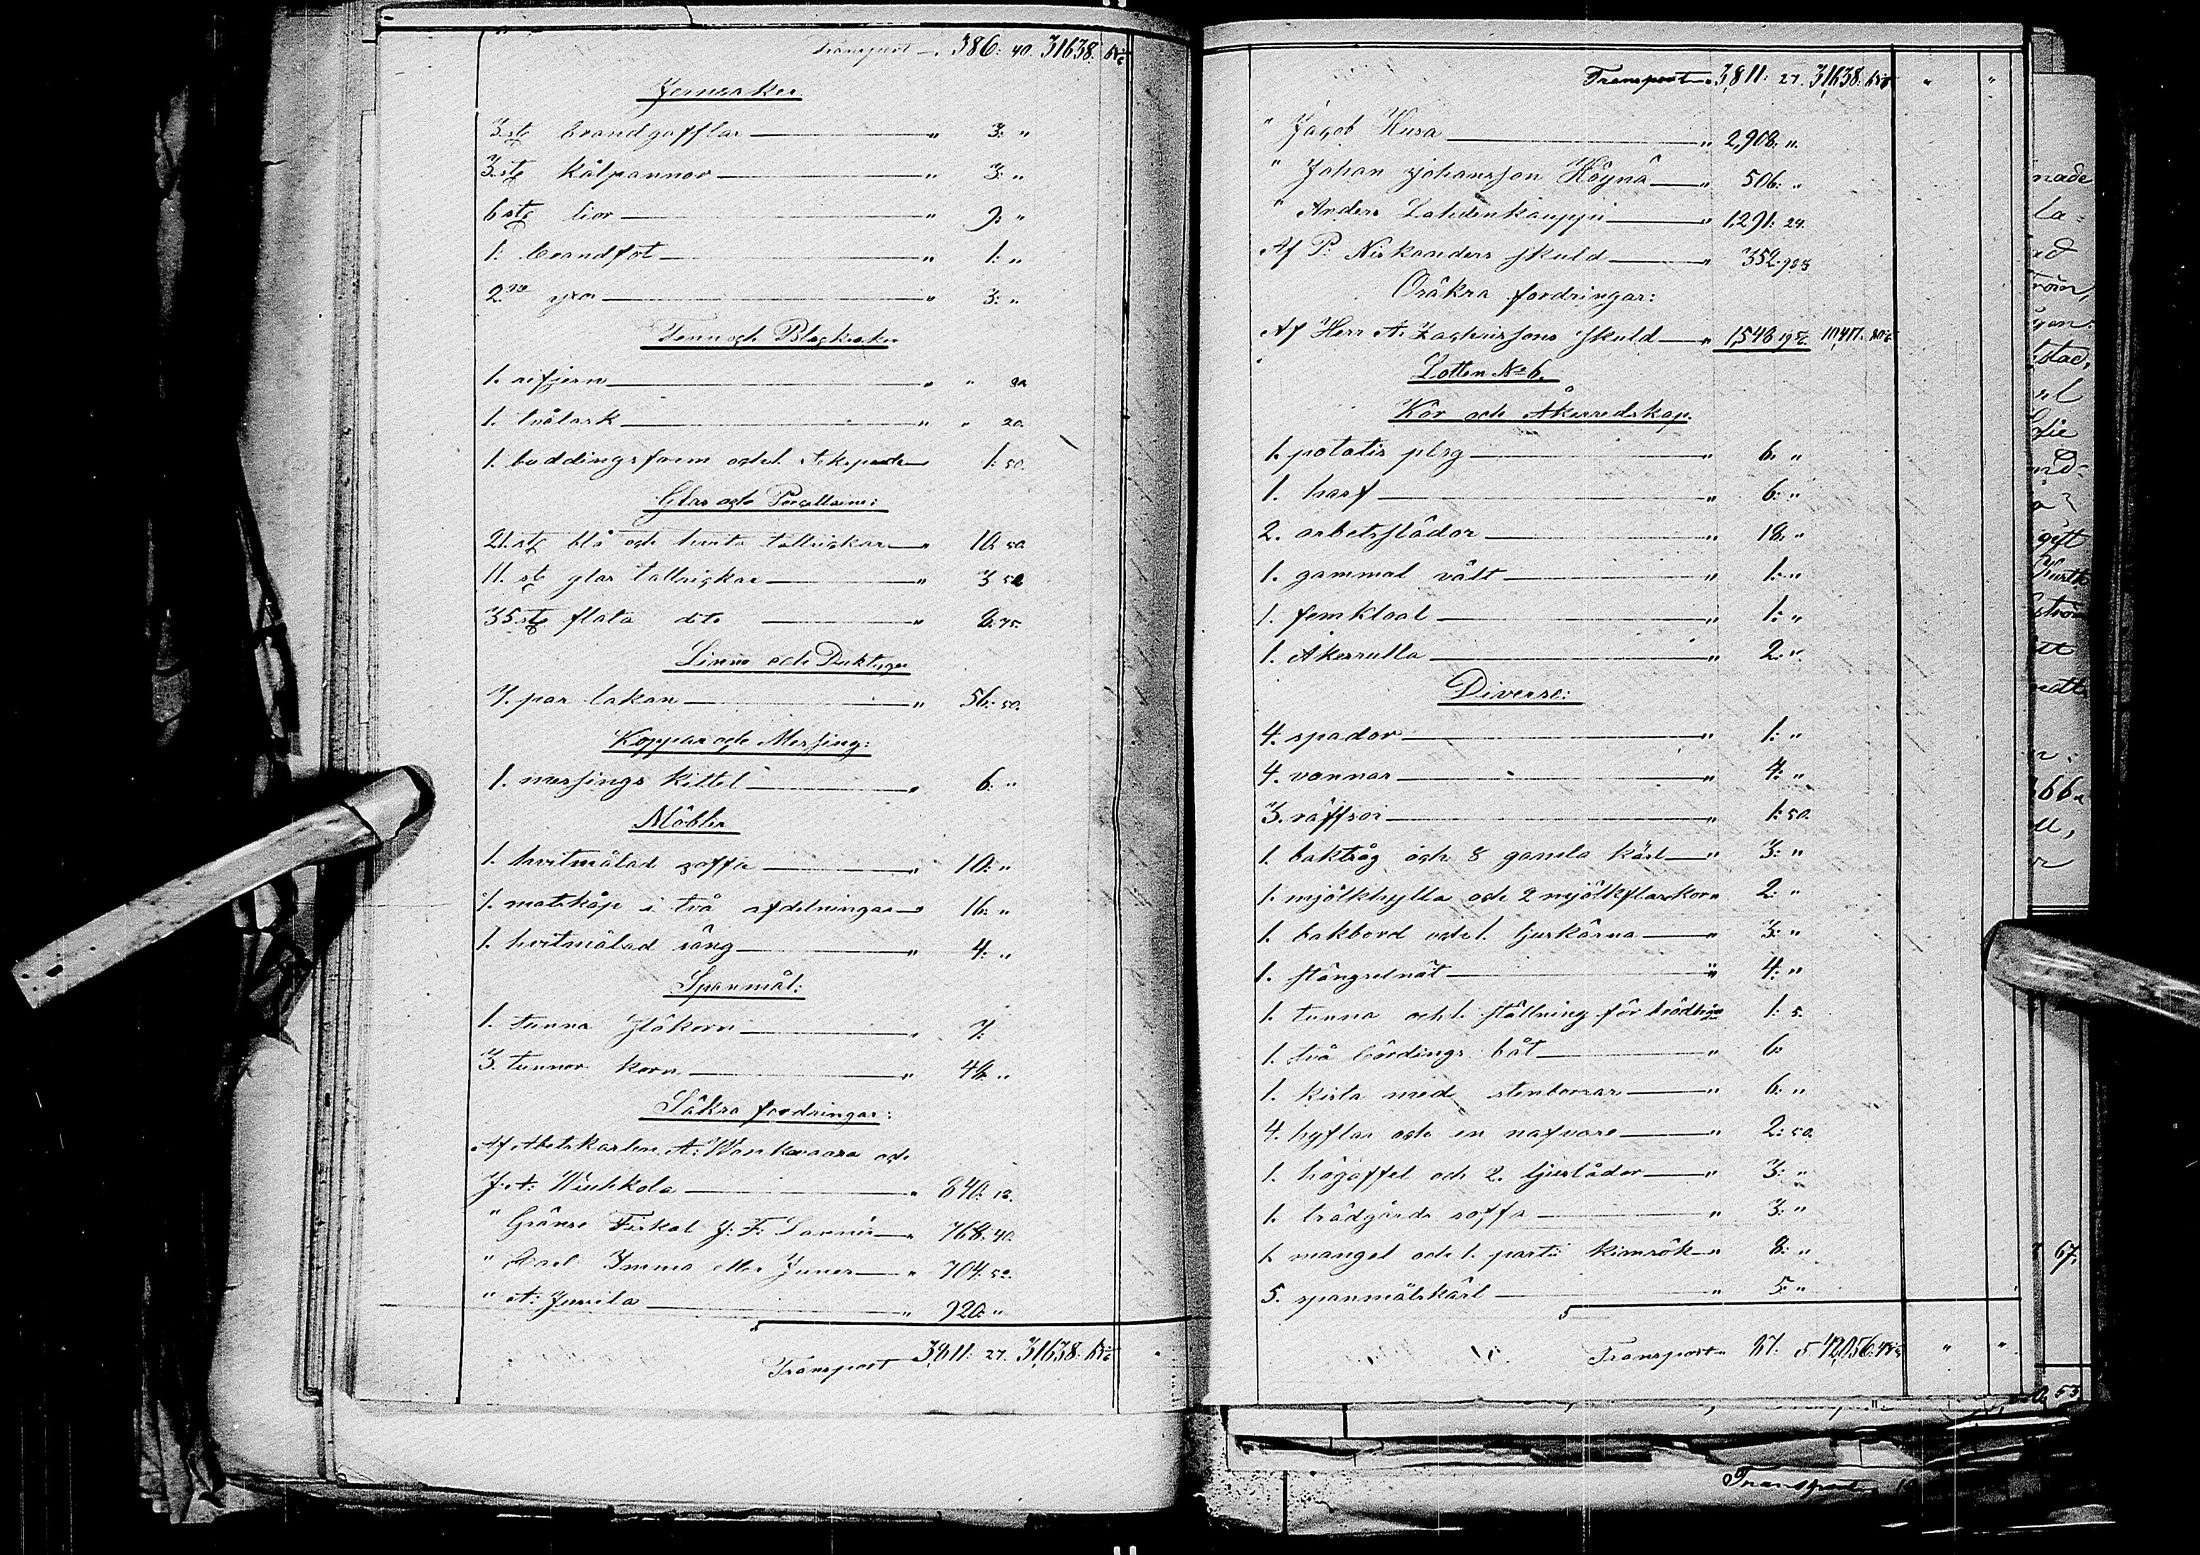 Transport 386: 40. 31638:
Jernsaker
3. st brandgafflar " 3: "
3. st kålpannor " 3: "
6 st lior " 9: "
1: brandfot " 1: "
2ne yxor " 3: "
Tenn och Blecksaker
1. rifjern " "
1. tvålask " " 20.
1. buddingsform och 1. " 1: 50.
Glas och Porcelliner:
21. st blå och hvita tallrickar " 10: 50.
11. st glas tallrickar " 3 50
35. st flata dito " 8: 75.
Linne och Duktyger
7. par lakan " 56: 50.
Koppar och Messing:
1. messings kittel " 6: "
Möbler
1. hvitmålad soffa " 10: "
1. matskåp i två afdelningar " 16: "
1. hvitmålad säng " 4: "
Spanmål:
1. tunna slökorn " 7:
3. tunnor korn " 48: "
Säkra fordringar:
Af A: och
J: A: " 840: 12.
" Gränse Fiskal J: F: " 768: 40.
" Carl Imma eller Junes " 704: 52.
" A: Jussila " 920: "
Transport 3,811: 27. 31,638:
Transport 3,811: 27. 31,638:
" Jacob Husa " 2,908: "
" Johan Johansson Höynä " 506: "
" Anders Lahdenkauppi " 1,291: 24.
Af P: Niskanders skuld " 352:
Osäkra fordringar:
Af Herr A: Zachrissons skuld " 1,548
Lotten No 6.
Kör och Åkerredskap.
1. potatis plog " 6: "
1. harf " 6: "
2. arbetsslädor " 18: "
1. gammal vält " 1: "
1. femklaal " 1: "
1. Åkerrulla " 2: "
Diverse:
4. spador " 1: "
4. vannar " 4: "
3. räffsor " 1: 50.
1. baktråg och 8 gamla kärl " 3: "
1. mjölkhylla och 2 mjölkflaskor " 2: "
1. bakbord och 1. ljuskärna " 3: "
1. stängselnät " 4: "
1. tunna och 1. ställning för " 1: 5.
1. två bördings båt " 6:
1. kista med stenborrar " 6: "
4. hyflar och en nafvare " 2: 50.
1. högaffel och 2. ljuslådor " 3: "
1. trädgårds soffa " 3: "
1. mangel och 1. parti kimrök " 8: "
5. spanmålskärl " 5: "
Transport 87: 5 42,056: " "